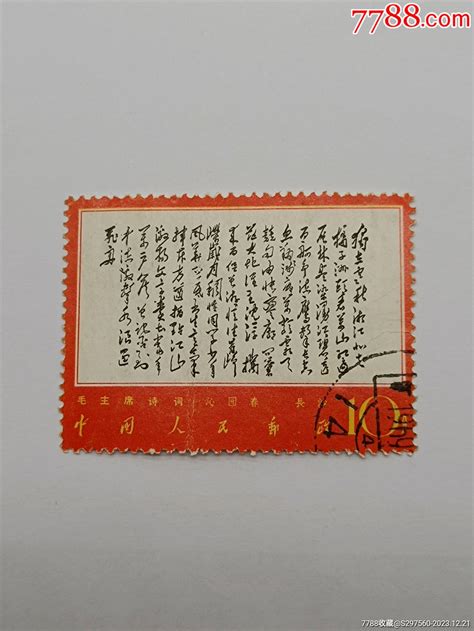 7788.com
独立寒秋湘江北去
橘子洲头看万山红遍
层林尽染漫江碧透
百舸争流鹰击长空
鱼翔浅底万类霜天
竞自由怅寥廓问苍
茫大地谁主沉浮携
来百侣曾游忆往昔
峥嵘岁月稠恰同学少年
风华正茂书生意气
挥斥方遒指点江山
激扬文字粪土当年
万户侯曾记否到
中流击水浪遏
飞舟
毛主席诗词 沁园春 長
中国人民郵政 10
7788收藏@S297560-2023.12.21